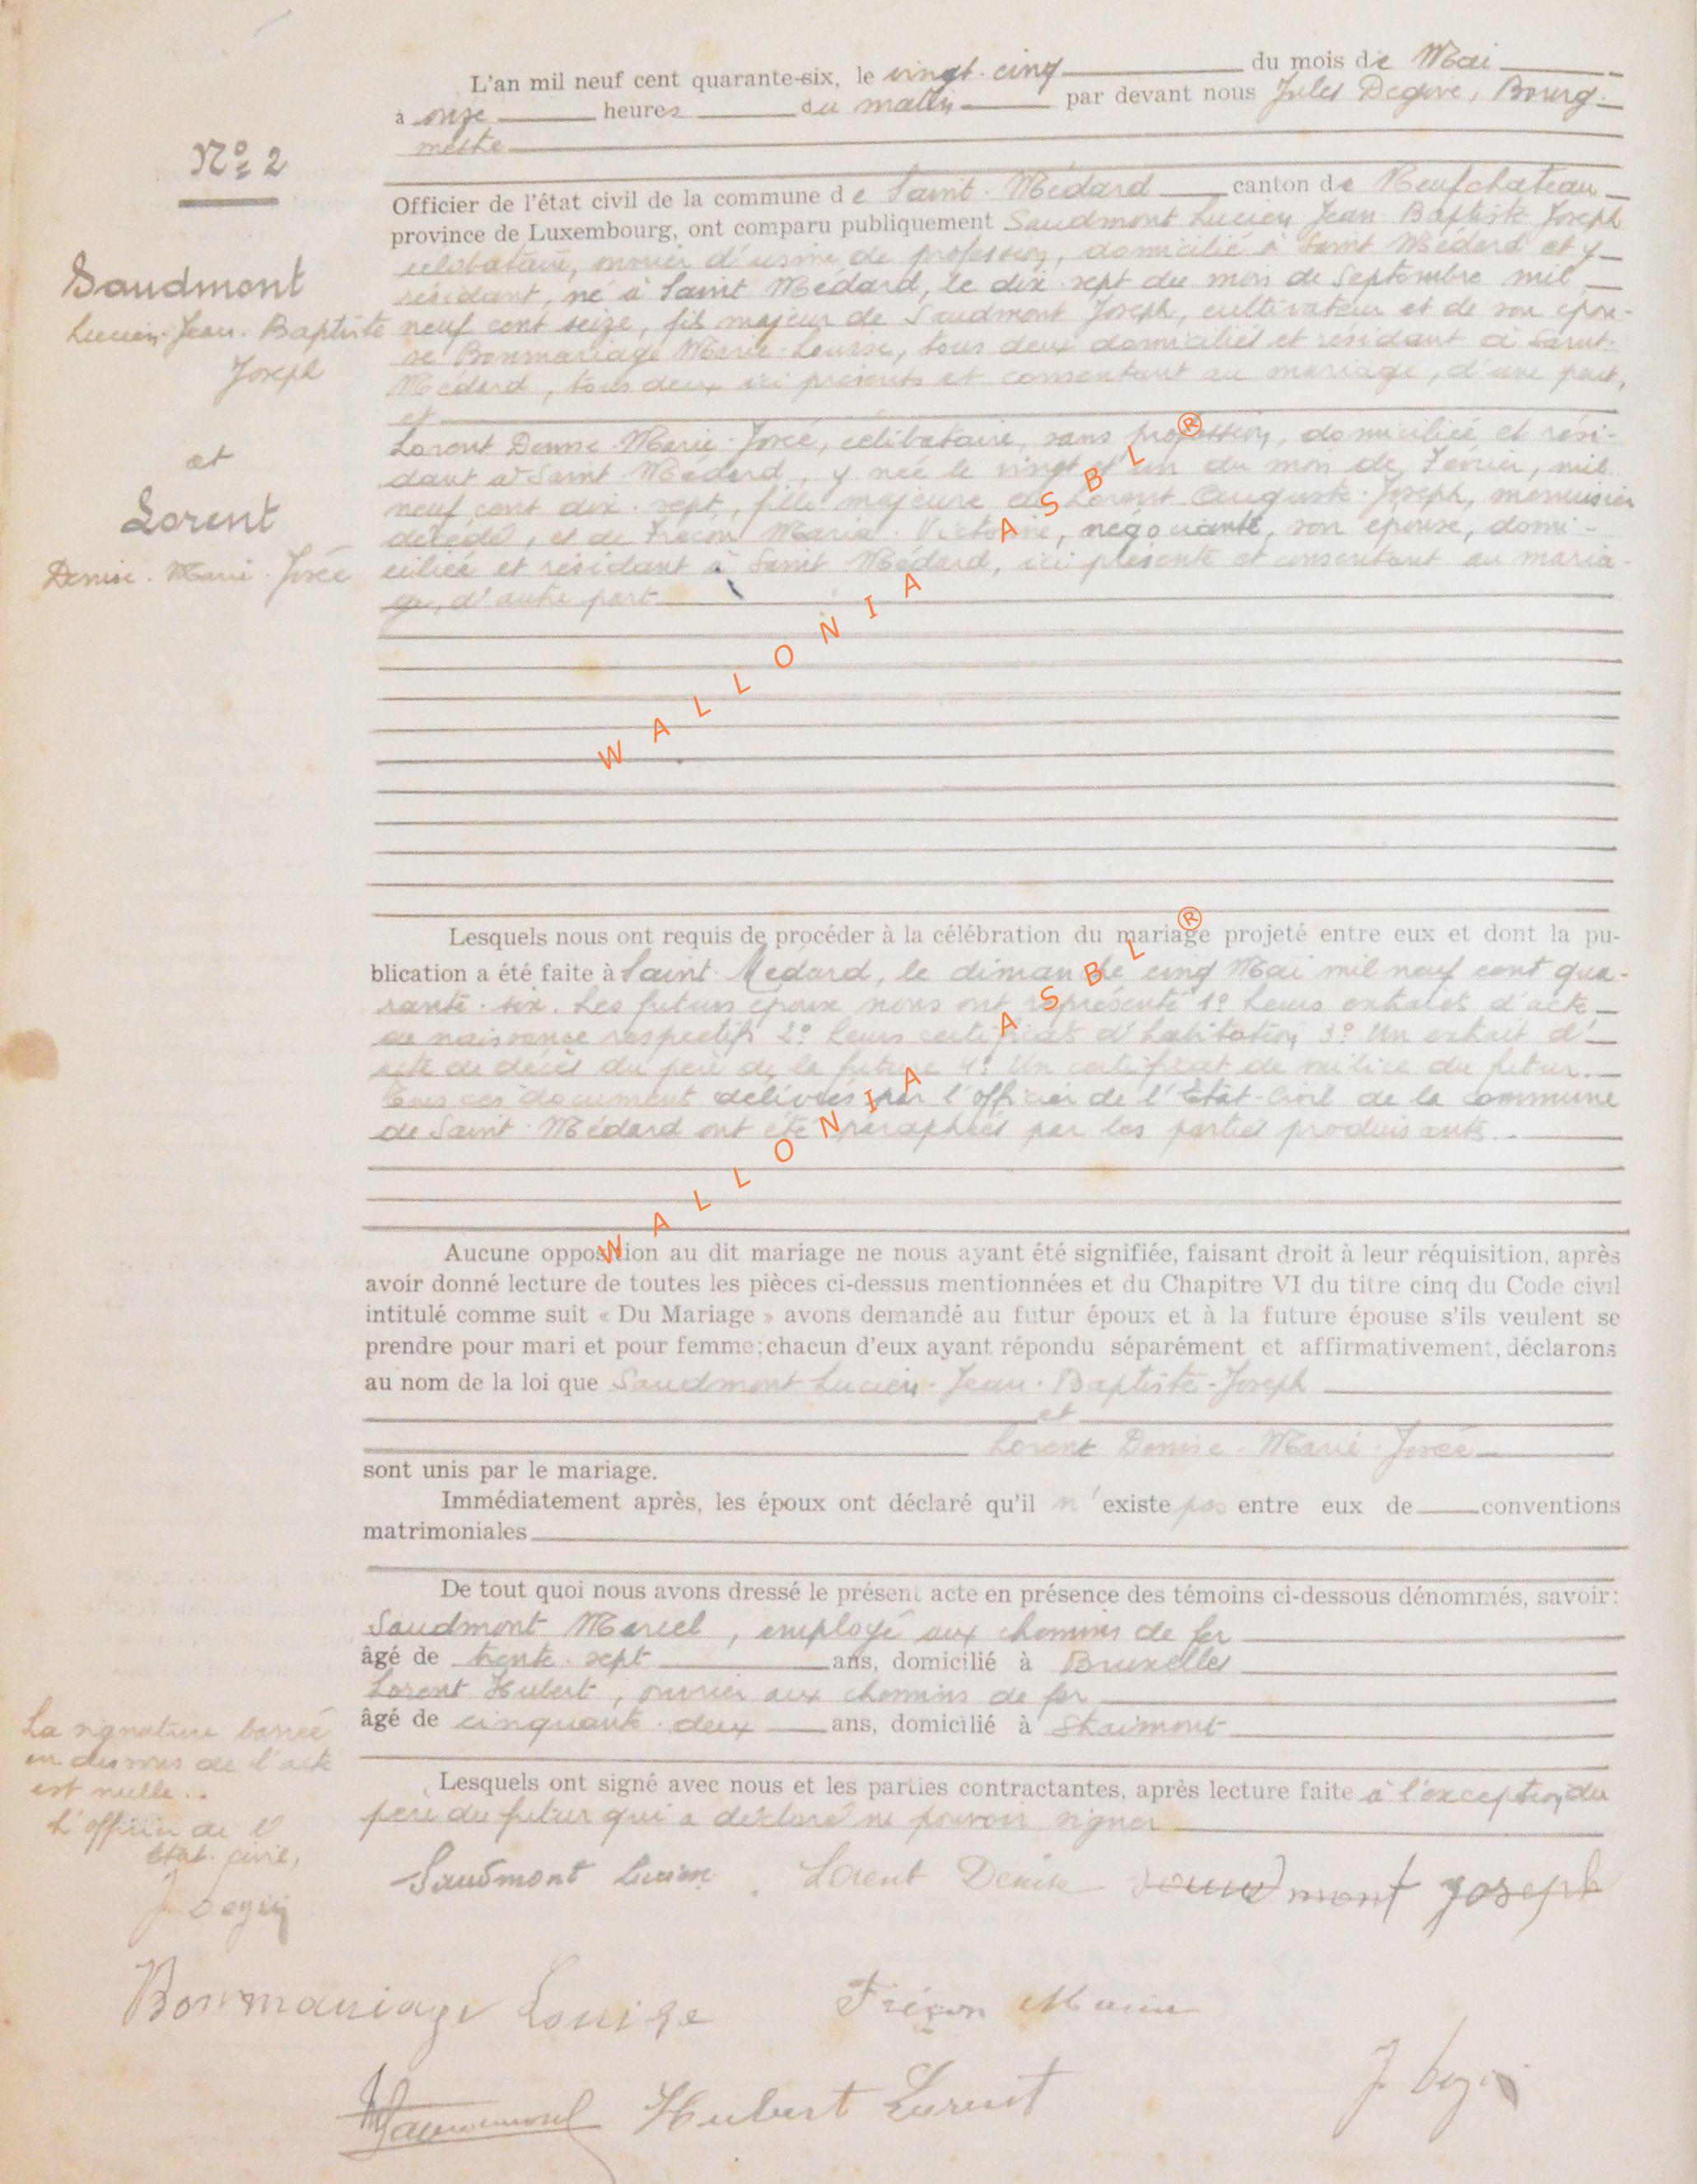 L'an mil neuf cent quarante-six, le vingt-cinq du mois de Mai
à onze heures du matin par devant nous Jules Degive, Bourg-
mestre
Nº 2
Officier de l'état civil de la commune de Saint-Médard canton de Neufchateau
province de Luxembourg, ont comparu publiquement Saudmont Lucien-Jean-Baptiste-Joseph
célibataire, ouvrier d'usine de profession, domicilié à Saint Médard et y
résidant, né à Saint Médard, le dix-sept du mois de Septembre mil
neuf cent seize, fils majeur de Saudmont Joseph, cultivateur et de son épou-
se Bonmariage Marie-Louise, tous deux domiciliés et résidant à Saint-
Médard, tous deux ici présents et consentant au mariage, d'une part,
et
Saudmont
Lucien-Jean-Baptiste
Joseph
et
Lorent
Denise-Marie-Josée
Lorent Denise-Marie-Josée, célibataire, sans profession, domiciliée et rési-
dant à Saint-Médard, y née le vingt et un du mois de Février, mil
neuf cent dix-sept, fille majeure de Lorent Auguste-Joseph, menuisier
décédé, et de Fréçon Marie-Victorine, négociante, son épouse, domi-
ciliée et résidant à Saint Médard, ici présente et consentant au maria-
ge, d'autre part
WALLONIA ASBL ®
Lesquels nous ont requis de procéder à la célébration du mariage projeté entre eux et dont la pu-
blication a été faite à Saint-Médard, le dimanche cinq Mai mil neuf cent qua-
rante-six. Les futurs époux nous ont représenté 1º Leurs extraits d'acte
de naissance respectifs 2º Leurs certificats d'habitation 3º Un extrait d'
acte de décès du père de la future 4º Un certificat de milice du futur.
Tous ces document délivrés par l'officier de l'Etat-Civil de la commune
de Saint-Médard ont été paraphées par les parties produisants.
WALLONIA ASBL ®
Aucune opposition au dit mariage ne nous ayant été signifiée, faisant droit à leur réquisition, après
avoir donné lecture de toutes les pièces ci-dessus mentionnées et du Chapitre VI du titre cinq du Code civil
intitulé comme suit « Du Mariage » avons demandé au futur époux et à la future épouse s'ils veulent se
prendre pour mari et pour femme; chacun d'eux ayant répondu séparément et affirmativement, déclarons
au nom de la loi que Saudmont Lucien-Jean-Baptiste-Joseph
et
Lorent Denise-Marie-Josée
sont unis par le mariage.
Immédiatement après, les époux ont déclaré qu'il n'existe pas entre eux de conventions
matrimoniales
De tout quoi nous avons dressé le présent acte en présence des témoins ci-dessous dénommés, savoir:
Saudmont Marcel, employé aux chemins de fer
âgé de trente-sept ans, domicilié à Bruxelles
Lorent Hubert, ouvrier aux chemins de fer
âgé de cinquante-deux ans, domicilié à Straimont
Lesquels ont signé avec nous et les parties contractantes, après lecture faite à l'exception du
père du futur qui a déclaré ne pouvoir signer
La signature barrée
en dessous de l'acte
est nulle..
L'officier de l'
Etat-civil,
Saudmont Lucien Lorent Denise Saudmont Joseph
Bonmariage Louise Fréçon Marie
Hubert Lorent